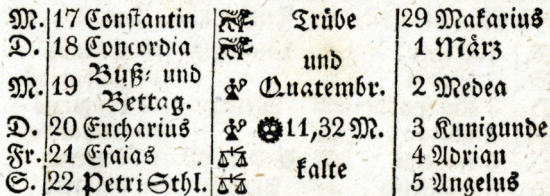 M. 17 Conſtantin Trübe 29 Makarius
D. 18 Concordia und 1 März
M. 19 Buß- und Bettag. Quatembr. 2 Medea
D. 20 Eucharius 11,32 M. 3 Kunigunde
Fr. 21 Eſaias kalte 4 Adrian
S. 22 Petri Sthl. 5 Angelus